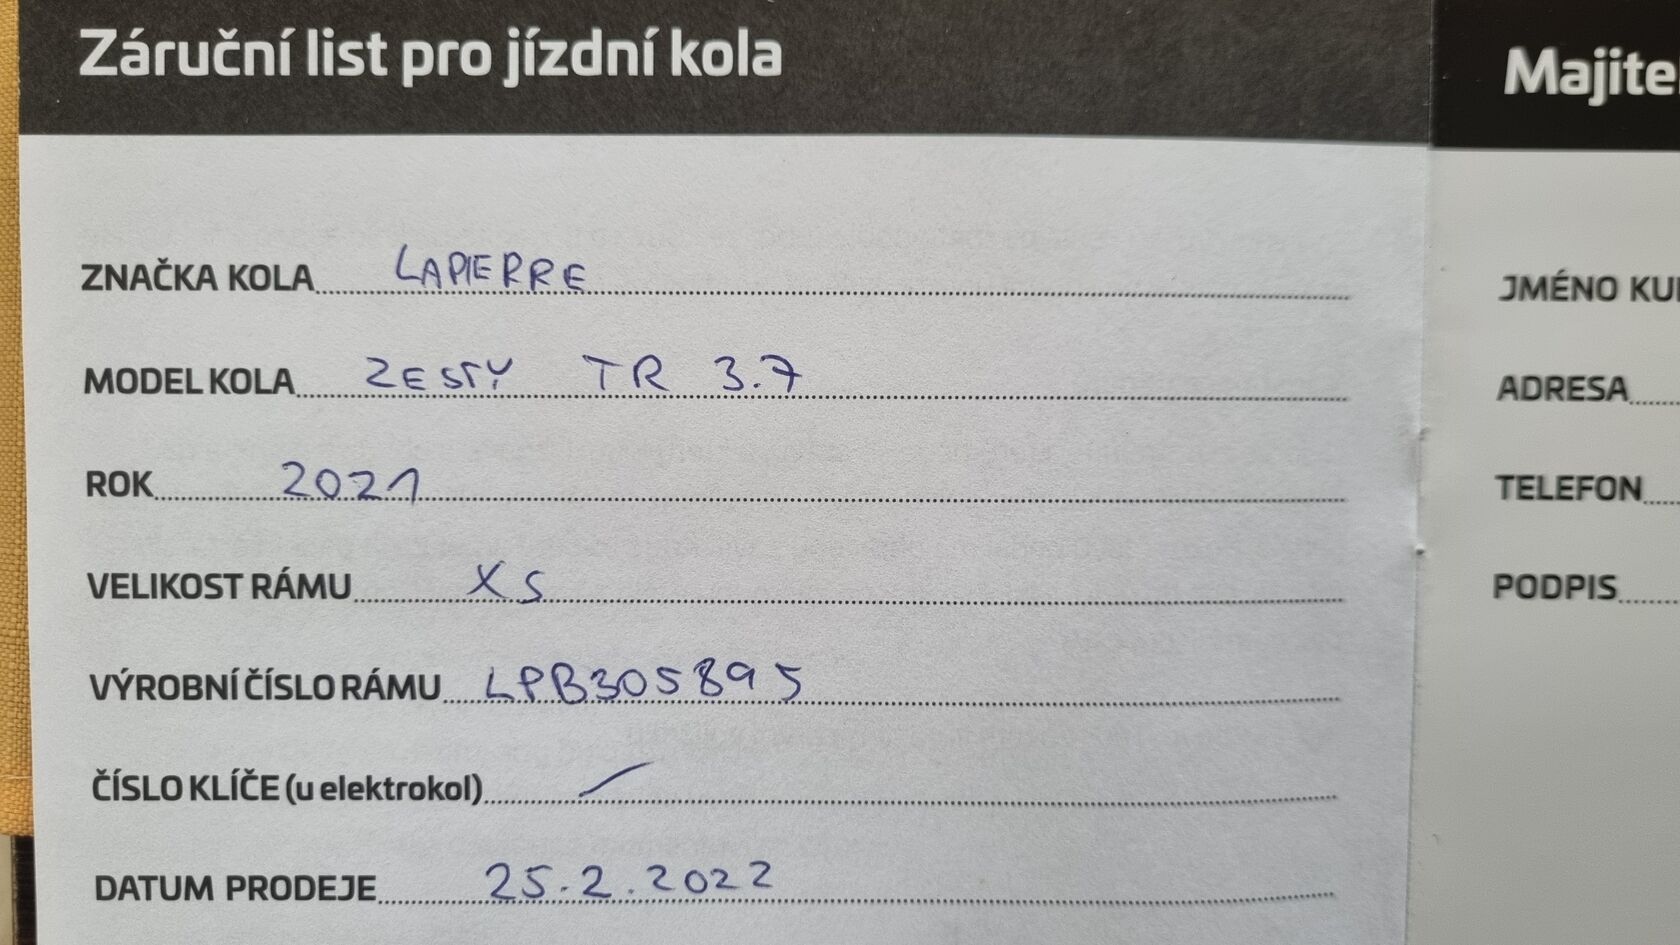 Záruční list pro jízdní kola
ZNAČKA KOLA LAPIERRE
MODEL KOLA ZESTY TR 3.7
ROK 2021
VELIKOST RÁMU XS
VÝROBNÍ ČÍSLO RÁMU LPB305895
ČÍSLO KLÍČE (u elektrokol)
DATUM PRODEJE 25.2.2022
Majite
JMÉNO KU
ADRESA
TELEFON
PODPIS